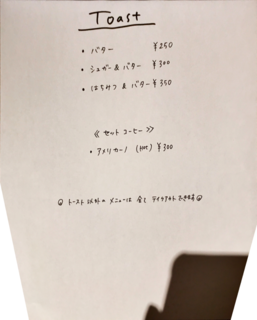 Toast
・バター ¥250
・シュガー&バター ¥300
・はちみつ&バター ¥350
《セットコーヒー》
・アメリカーノ (HOT) ¥300
◎トースト以外のメニューは全てテイクアウトできます◎